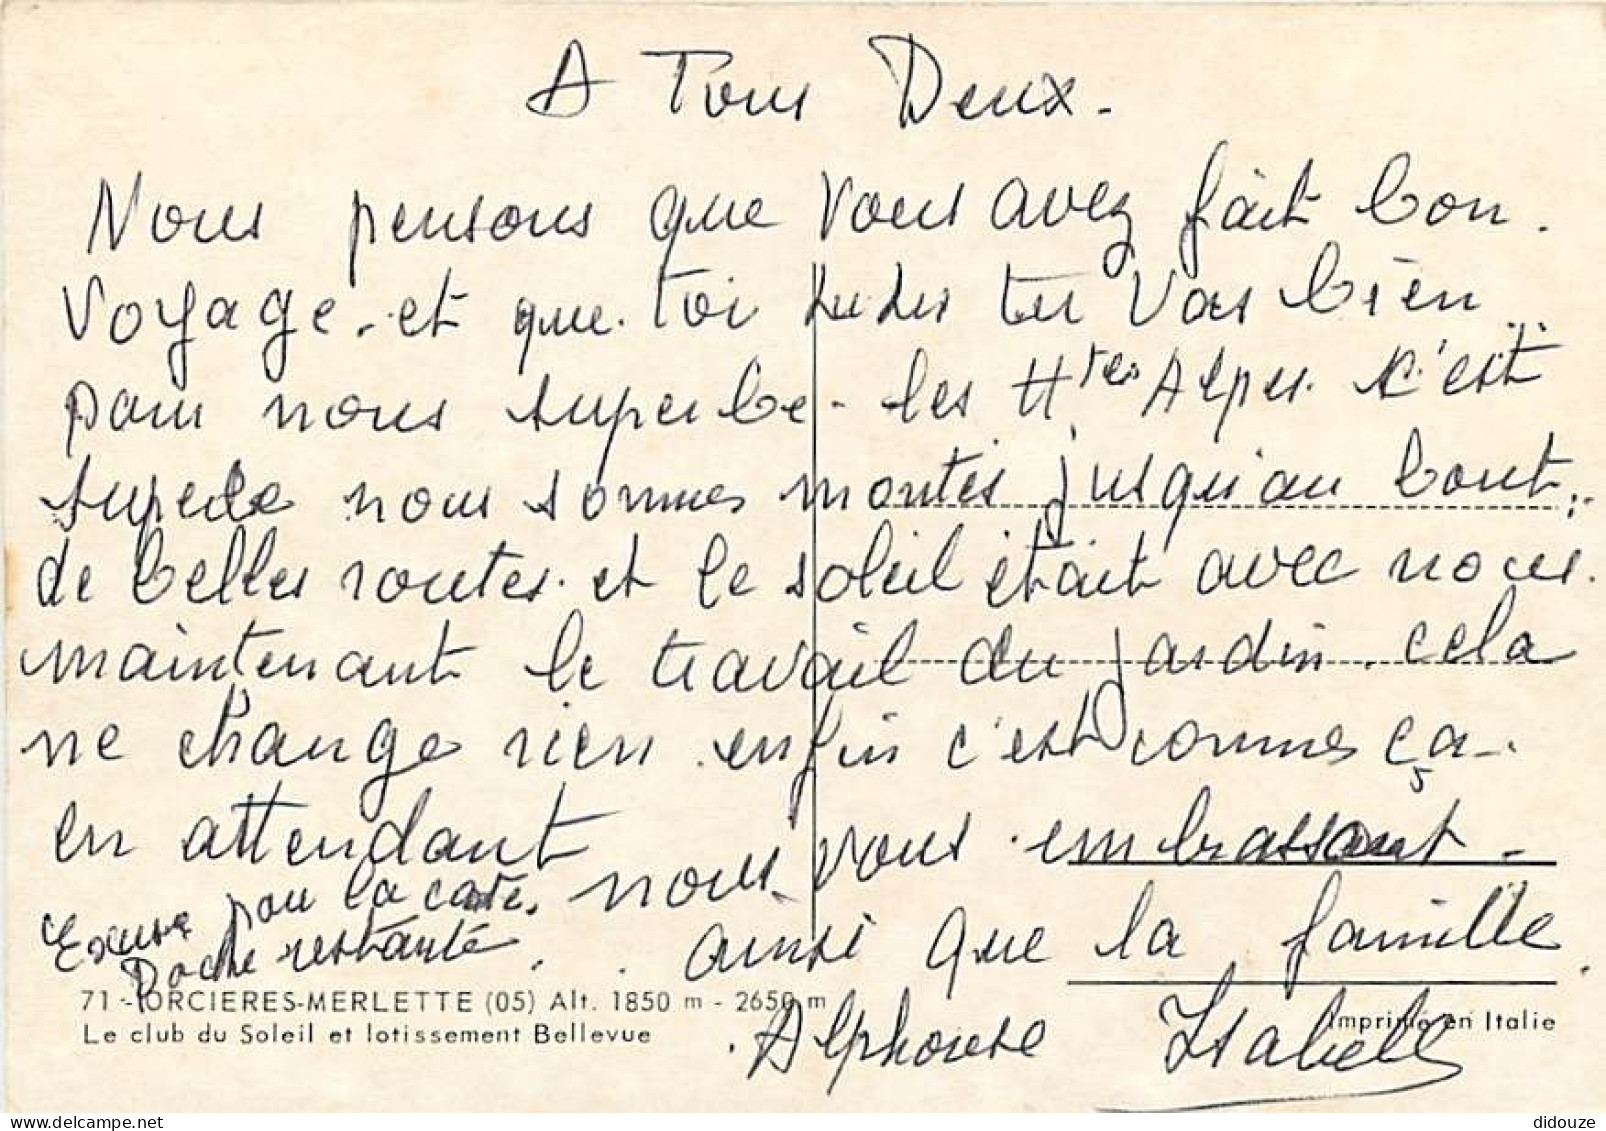 A Tous Deux.
Nous pensons que vous avez fait bon.
Voyage. et que toi tu vas bien..
pour nous superbe - les Htes Alpes. c'est
superbe nous sommes montés jusqu'au bout.
de belles routes. et le soleil était avec nous.
maintenant le travail du jardin. cela
ne change rien. enfin c'est comme ça-.
en attendant
nous vous embrassont-
Excuse pour la carte.
ainsi que la famille.
restante
71 - ORCIERES-MERLETTE (05) Alt. 1850 m - 2650 m
Le club du Soleil et lotissement Bellevue
Imprimé en Italie
Alphonse Isabelle
delcampe.net
didouze